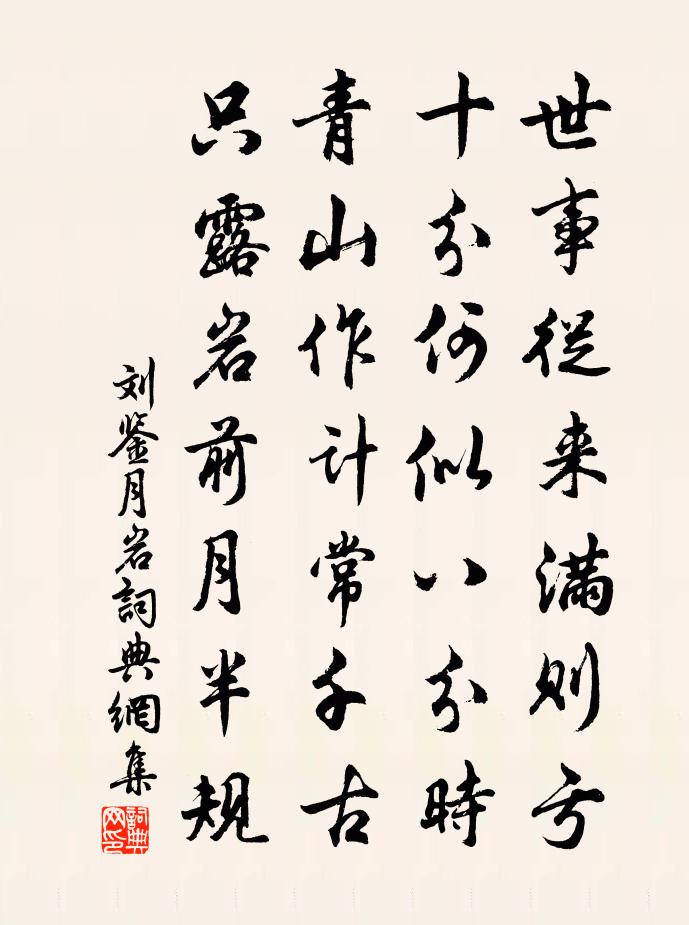 世事従来满则亏
十分何似八分時
青山作计常千古
只露岩前月半规
刘鉴月岩詞典網集
詞典网印